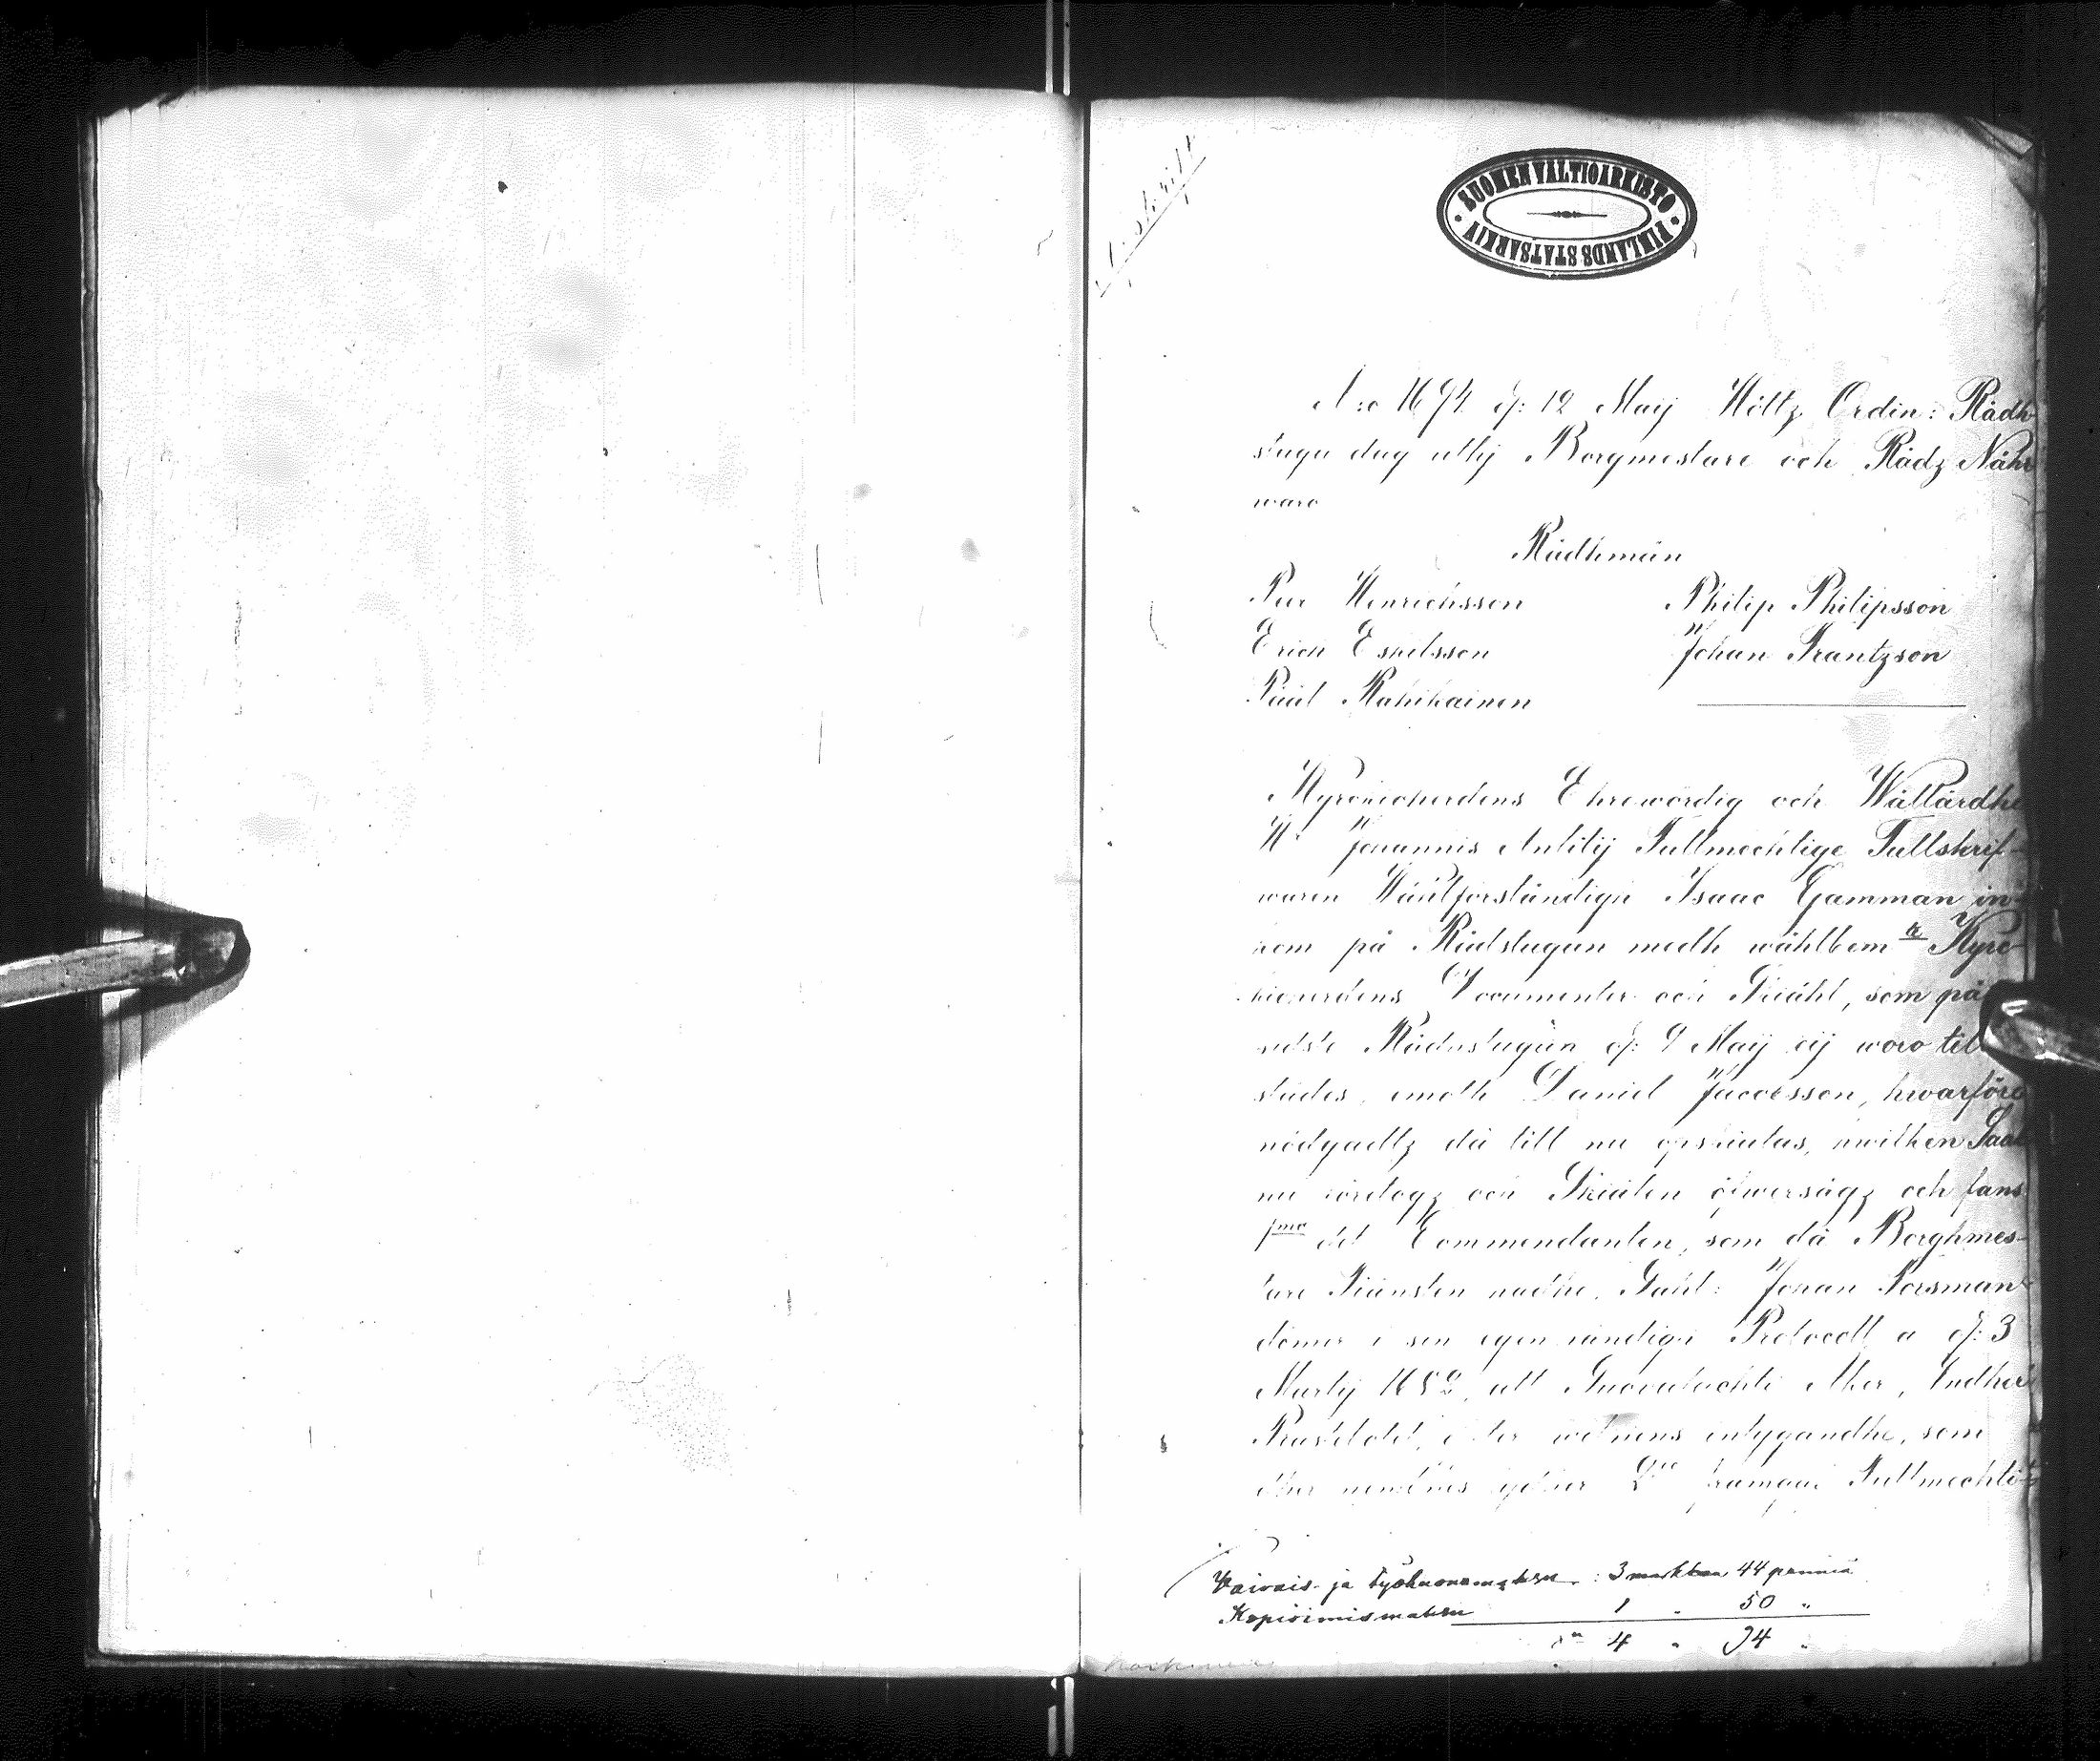 Afskrift
SUOMEN VALTIOARKISTO
FINLANDS STATSARKIV
A:o 1694 d: 12 Maij Höltz Ordin: Rådh
stugu dag uthj Borgmestare och Rådz Nähr
waro
Rådhmän
Per Henrichsson Philip Philipsson
Erich Eskilsson Johan Frantzson
Påål Kahikainen
Kyrckioherdens Ehrewördig och Wällärdhe
Hr Johannis Fullmechtige Tullskrif-
waren Isaac Gamman in-
kom på Rådstugun medh wählbem:te Kyrc-
kioherdens Documenter och Skiähl, som på
sidste Rådhstugun d: 9 Maij eij woro til
städes, emoth Daniel Jacobsson, hwarföre
nödgadtz då till nu opskiutas, hwilken Saak
nu företogz och Skiälen öfwersågz och fans
1mo det Commendanten, som då Borghmes-
tare Tiänsten hadhe, Sahl: Johan Forsman
dömer i sin egenhändige Protocoll a d: 3
Martij 1682, att Åker, Undher
Prästebohlet, efter witnens intygandhe, som
2do framgaf Fullmechtig
Vaivais- ja työhuonemaksu : 3 markkaa 44 penniä
Kopioimismaksu 1 " 50 "
4 " 94 "